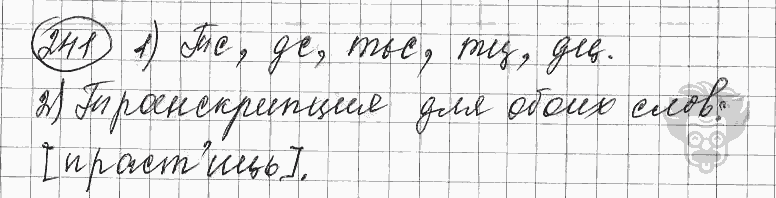 241 1) Тс, дс, тьс, тц, дц.
2) Транскрипция для обоих слов:
[праст'ицъ].